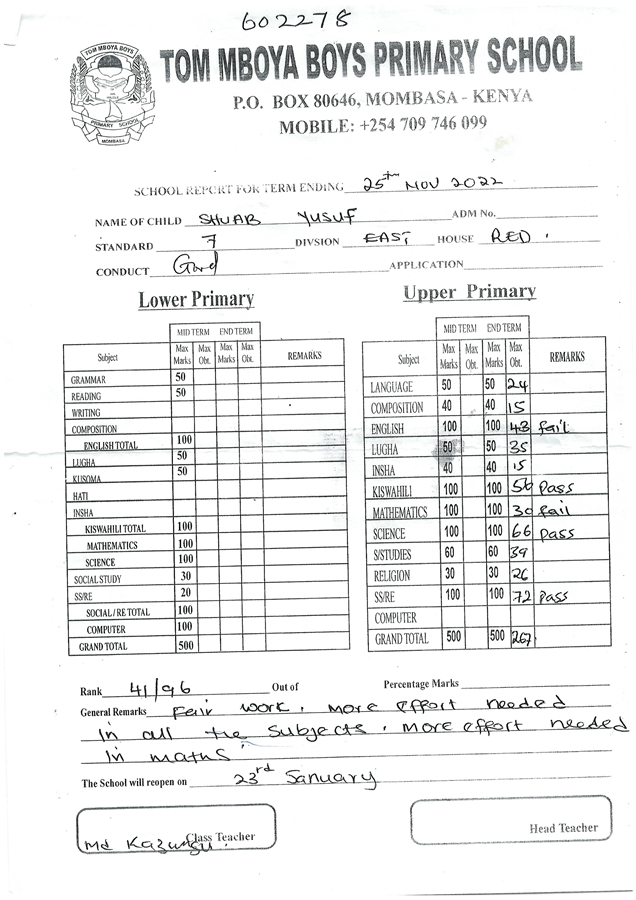 602278
TOM MBOYA BOYS
PRIMARY SCHOOL
MOMBASA
TOM MBOYA BOYS PRIMARY SCHOOL
P.O. BOX 80646, MOMBASA - KENYA
MOBILE: +254 709 746 099
SCHOOL REPORT FOR TERM ENDING 25th NOV 2022
NAME OF CHILD SHUAB YUSUF ADM No.
STANDARD 7 DIVSION EAST HOUSE RED.
CONDUCT Good APPLICATION
Lower Primary
MID TERM END TERM
Subject Max Marks Max Obt. Max Marks Max Obt. REMARKS
GRAMMAR 50
READING 50
WRITING
COMPOSITION
ENGLISH TOTAL 100
LUGHA 50
KUSOMA 50
HATI
INSHA
KISWAHILI TOTAL 100
MATHEMATICS 100
SCIENCE 100
SOCIAL STUDY 30
SS/RE 20
SOCIAL / RE TOTAL 100
COMPUTER 100
GRAND TOTAL 500
Upper Primary
MID TERM END TERM
Subject Max Marks Max Obt. Max Marks Max Obt. REMARKS
LANGUAGE 50 50 24
COMPOSITION 40 40 15
ENGLISH 100 100 43 fail
LUGHA 50 50 35
INSHA 40 40 15
KISWAHILI 100 100 56 pass
MATHEMATICS 100 100 30 fail
SCIENCE 100 100 66 pass
S/STUDIES 60 60 39
RELIGION 30 30 26
SS/RE 100 100 72 pass
COMPUTER
GRAND TOTAL 500 500 267
Rank 41/96 Out of Percentage Marks
General Remarks Fair work, more effort needed
in all the subjects, more effort needed
in maths.
The School will reopen on 23rd January
Class Teacher
Md Kazungu.
Head Teacher